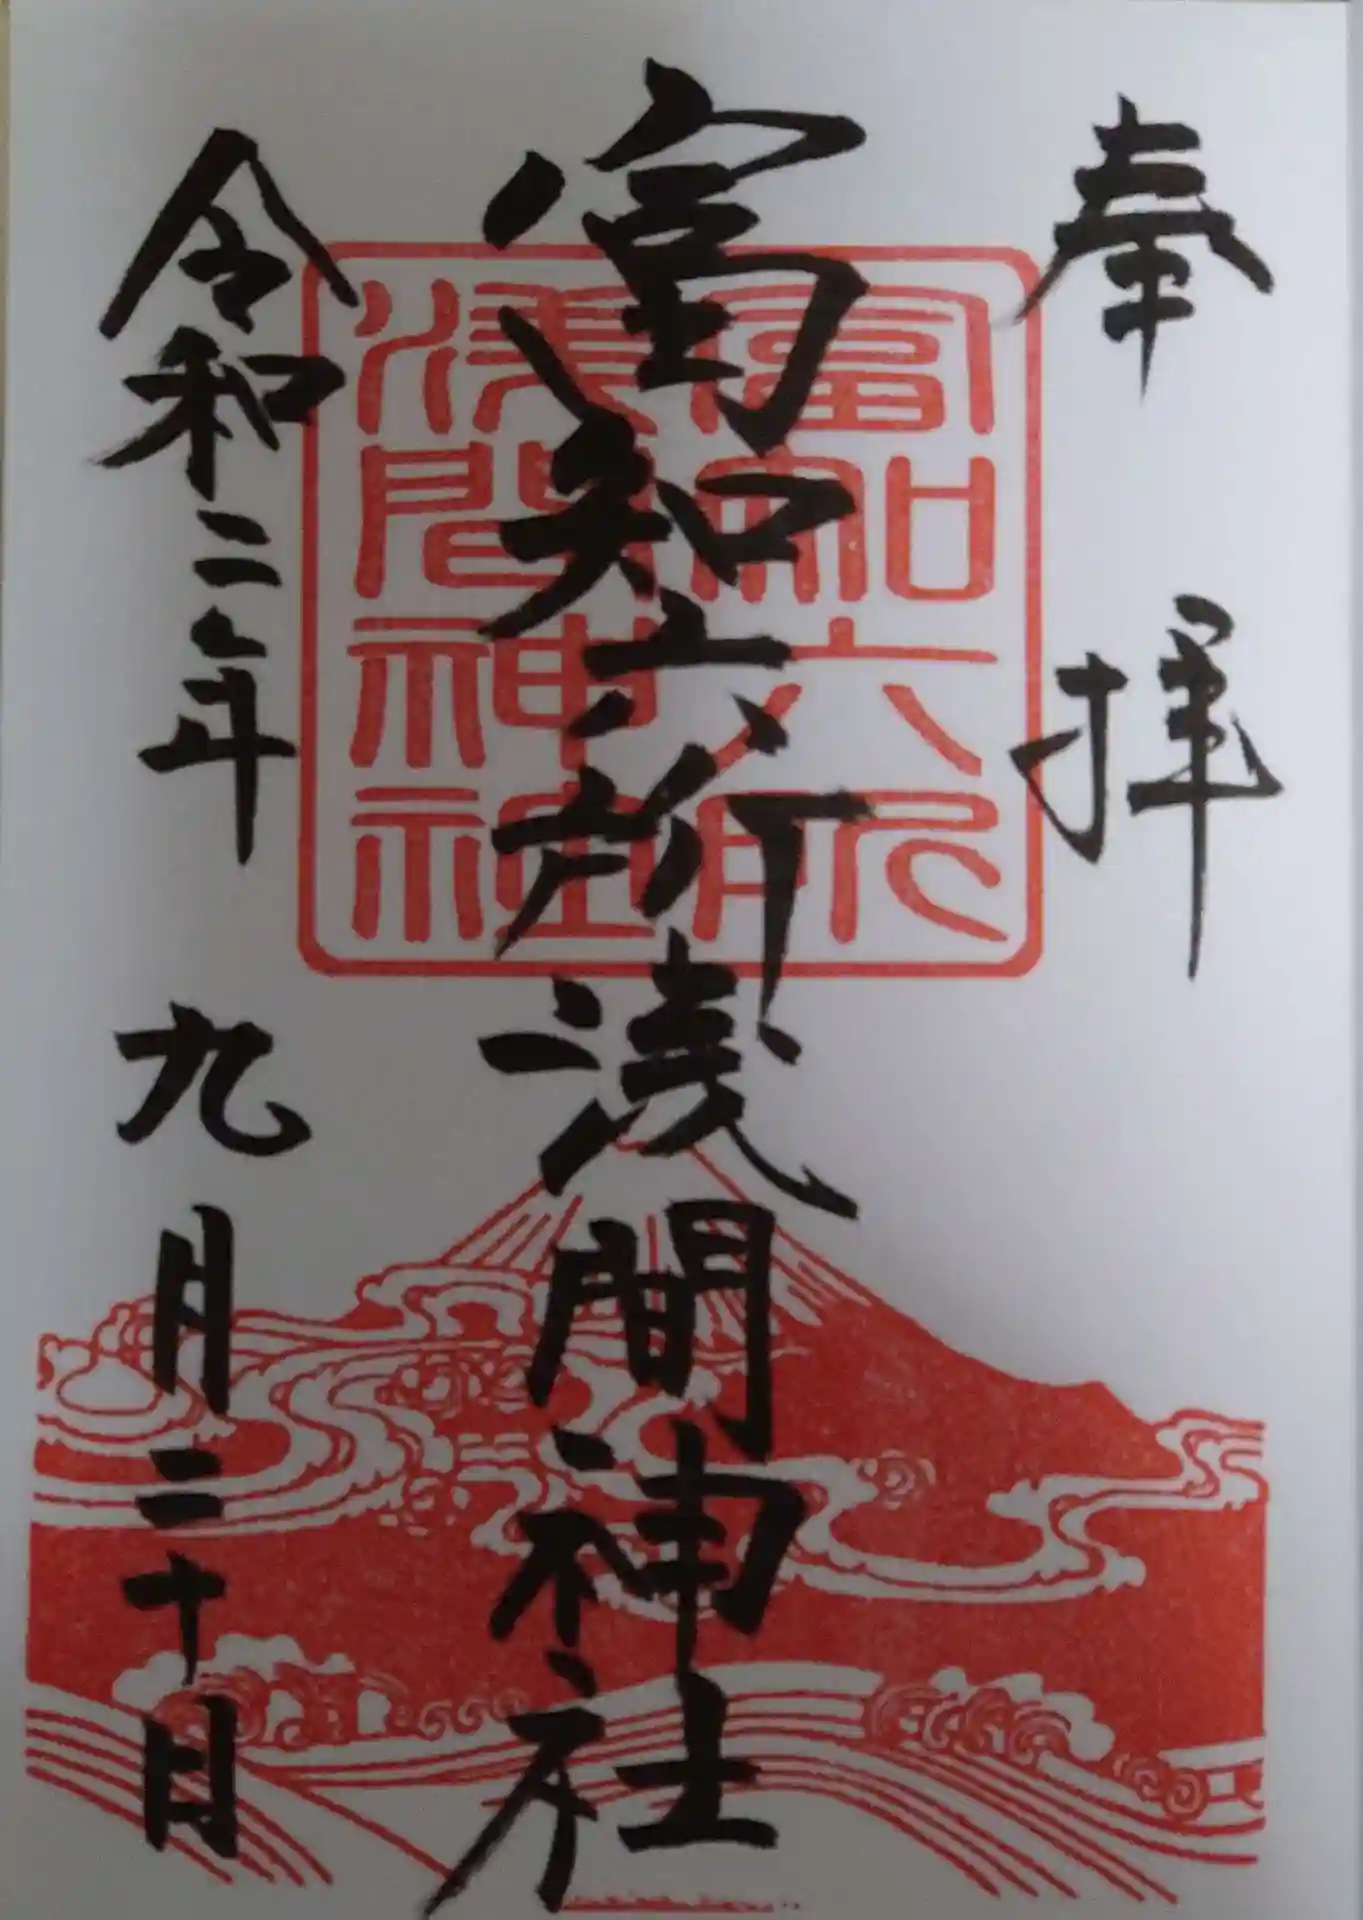 奉拝
富知六所浅間神社
令和二年九月二十日
富知六所
浅間神社